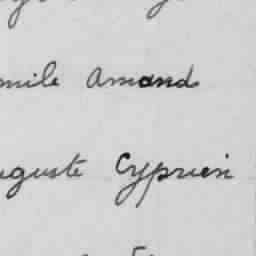 mile Amand
uguste Cyprien